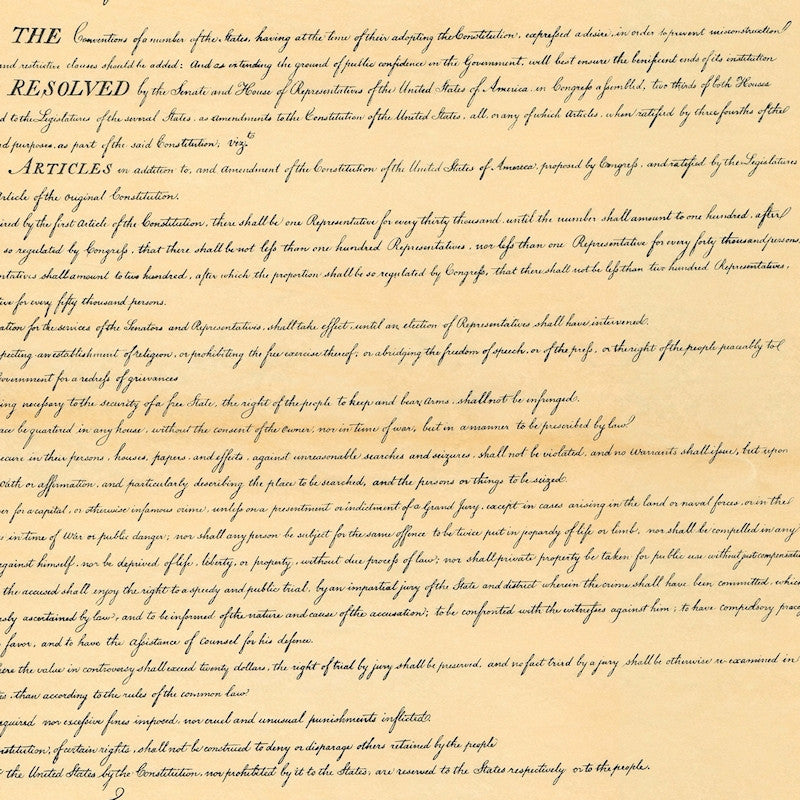 THE Conventions of a number of the States, having at the time of their adopting the Constitution, expressed a desire, in order to prevent misconstruction
and restrictive clauses should be added: And as extending the ground of public confidence in the Government, will best ensure the beneficent ends of its institution
RESOLVED by the Senate and House of Representatives of the United States of America, in Congress assembled, two thirds of both Houses
d to the Legislatures of the several States, as amendments to the Constitution of the United States, all, or any of which Articles, when ratified by three fourths of the
d purposes, as part of the said Constitution; vizt.
ARTICLES in addition to, and Amendment of the Constitution of the United States of America, proposed by Congress, and ratified by the Legislatures
Article of the original Constitution.
ired by the first Article of the Constitution, there shall be one Representative for every thirty thousand, until the number shall amount to one hundred, after
so regulated by Congress, that there shall be not less than one hundred Representatives, nor less than one Representative for every forty thousand persons,
ntatives shall amount to two hundred, after which the proportion shall be so regulated by Congress, that there shall not be less than two hundred Representatives,
tive for every fifty thousand persons.
ation for the services of the Senators and Representatives, shall take effect, until an election of Representatives shall have intervened.
pecting an establishment of religion, or prohibiting the free exercise thereof; or abridging the freedom of speech, or of the press, or the right of the people peaceably to
Government for a redress of grievances
ing necessary to the security of a free State, the right of the people to keep and bear Arms, shall not be infringed.
ace be quartered in any house, without the consent of the Owner, nor in time of war, but in a manner to be prescribed by law.
ecure in their persons, houses, papers, and effects, against unreasonable searches and seizures, shall not be violated, and no Warrants shall issue, but upon
Oath or affirmation, and particularly describing the place to be searched, and the persons or things to be seized.
er for a capital, or otherwise infamous crime, unless on a presentment or indictment of a Grand Jury, except in cases arising in the land or naval forces, or in the
in time of War or public danger; nor shall any person be subject for the same offence to be twice put in jeopardy of life or limb, nor shall be compelled in any
against himself, nor be deprived of life, liberty, or property, without due process of law; nor shall private property be taken for public use without just compensatio
the accused shall enjoy the right to a speedy and public trial, by an impartial jury of the State and district wherein the crime shall have been committed, which
usly ascertained by law, and to be informed of the nature and cause of the accusation; to be confronted with the witnesses against him; to have compulsory proce
favor, and to have the Assistance of Counsel for his defence.
ere the value in controversy shall exceed twenty dollars, the right of trial by jury shall be preserved, and no fact tried by a jury shall be otherwise re-examined in
tes, than according to the rules of the common law
equired nor excessive fines imposed, nor cruel and unusual punishments inflicted.
nstitution, of certain rights, shall not be construed to deny or disparage others retained by the people
the United States by the Constitution, nor prohibited by it to the States, are reserved to the States respectively or to the people.